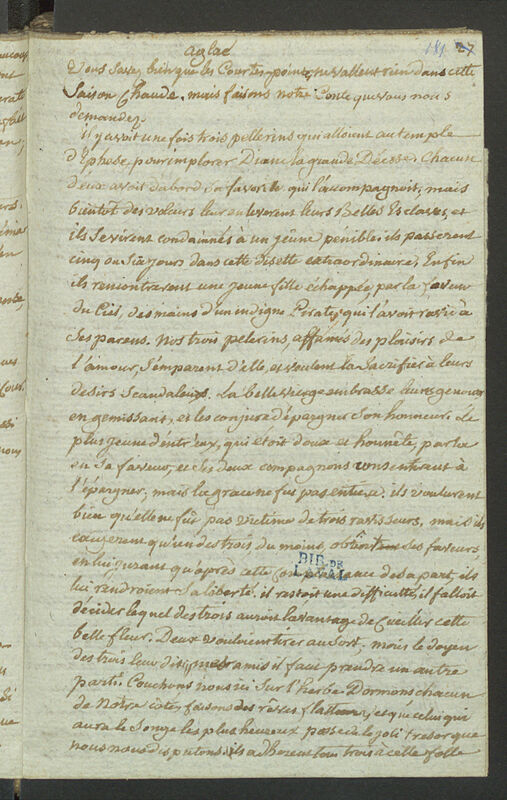 aglaé
181 27
Vous savez bien que les Courtes pointes ne vallent rien dans cette
Saison Chaude, mais faisons notre Conte que vous nous
demandez.
Il y avoit une fois trois pellerins qui alloient au temple
d'Ephese, pour implorer Diane la grande Déesse. Chacun
d'eux avoit d'abord sa favorite qui l'accompagnoit, mais
bientot des voleurs leur enleverent leurs Belles Esclaves, et
ils se virent condamnés à un jeûne pénible; ils passerent
cinq ou six jours dans cette disette extraordinaire, Enfin
ils rencontrerent une jeune fille échappée, par la faveur
du Ciel, des mains d'un indigne Pirate, qui l'avoit ravie à
ses parens. Nos trois pelerins, affâmés des plaisirs de
l'amour, s'emparent d'elle, et veulent la Sacrifier à leurs
desirs Scandaleux. La belle vierge embrasse leurs genoux
en gemissant, et les conjure d'épargner son honneur. Le
plus jeune d'entr'eux, qui étoit doux et honnête, parla
en sa faveur, et ses deux compagnons consentirent à
l'épargner; mais la grace ne fut pas entiere. ils voulurent
bien qu'elle ne fût pas victime de trois ravisseurs, mais ils
exigerent qu'un des trois du moins, obtint ses faveurs
en lui jurant qu'après cette complaisance de sa part, ils
lui rendroient sa liberté. il restoit une difficulté, il falloit
décider lequel des trois auroit l'avantage de Cueiller cette
belle fleur. Deux vouloient tirer au Sort, mais le doyen
des trois leur dit; mes amis il faut prendre un autre
parti. Couchons nous ici sur l'herbe. Dormons chacun
de notre coté, faisons des rêves flatteurs, et que celui qui
aura le Songe le plus heureux possede le joli tresor que
nous nous disputons. ils adhererent tous trois à cette folle
BIB. DE
LAVAL